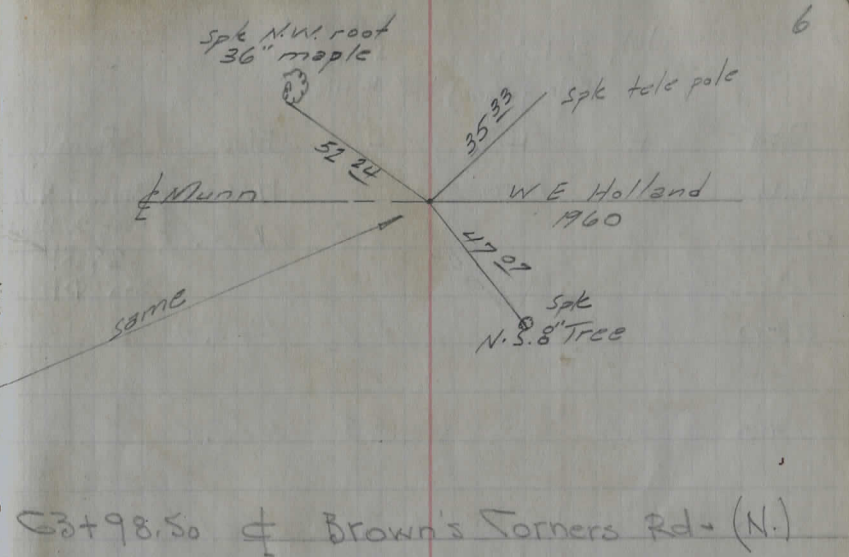 6
Spk N.W. root
36" maple
Spk tele pole
35 33
52 24
℄ Munn
W E Holland
1960
47 07
same
Spk
N.S. 8" Tree
63+98.50 ℄ Brown's Corners Rd. (N.)